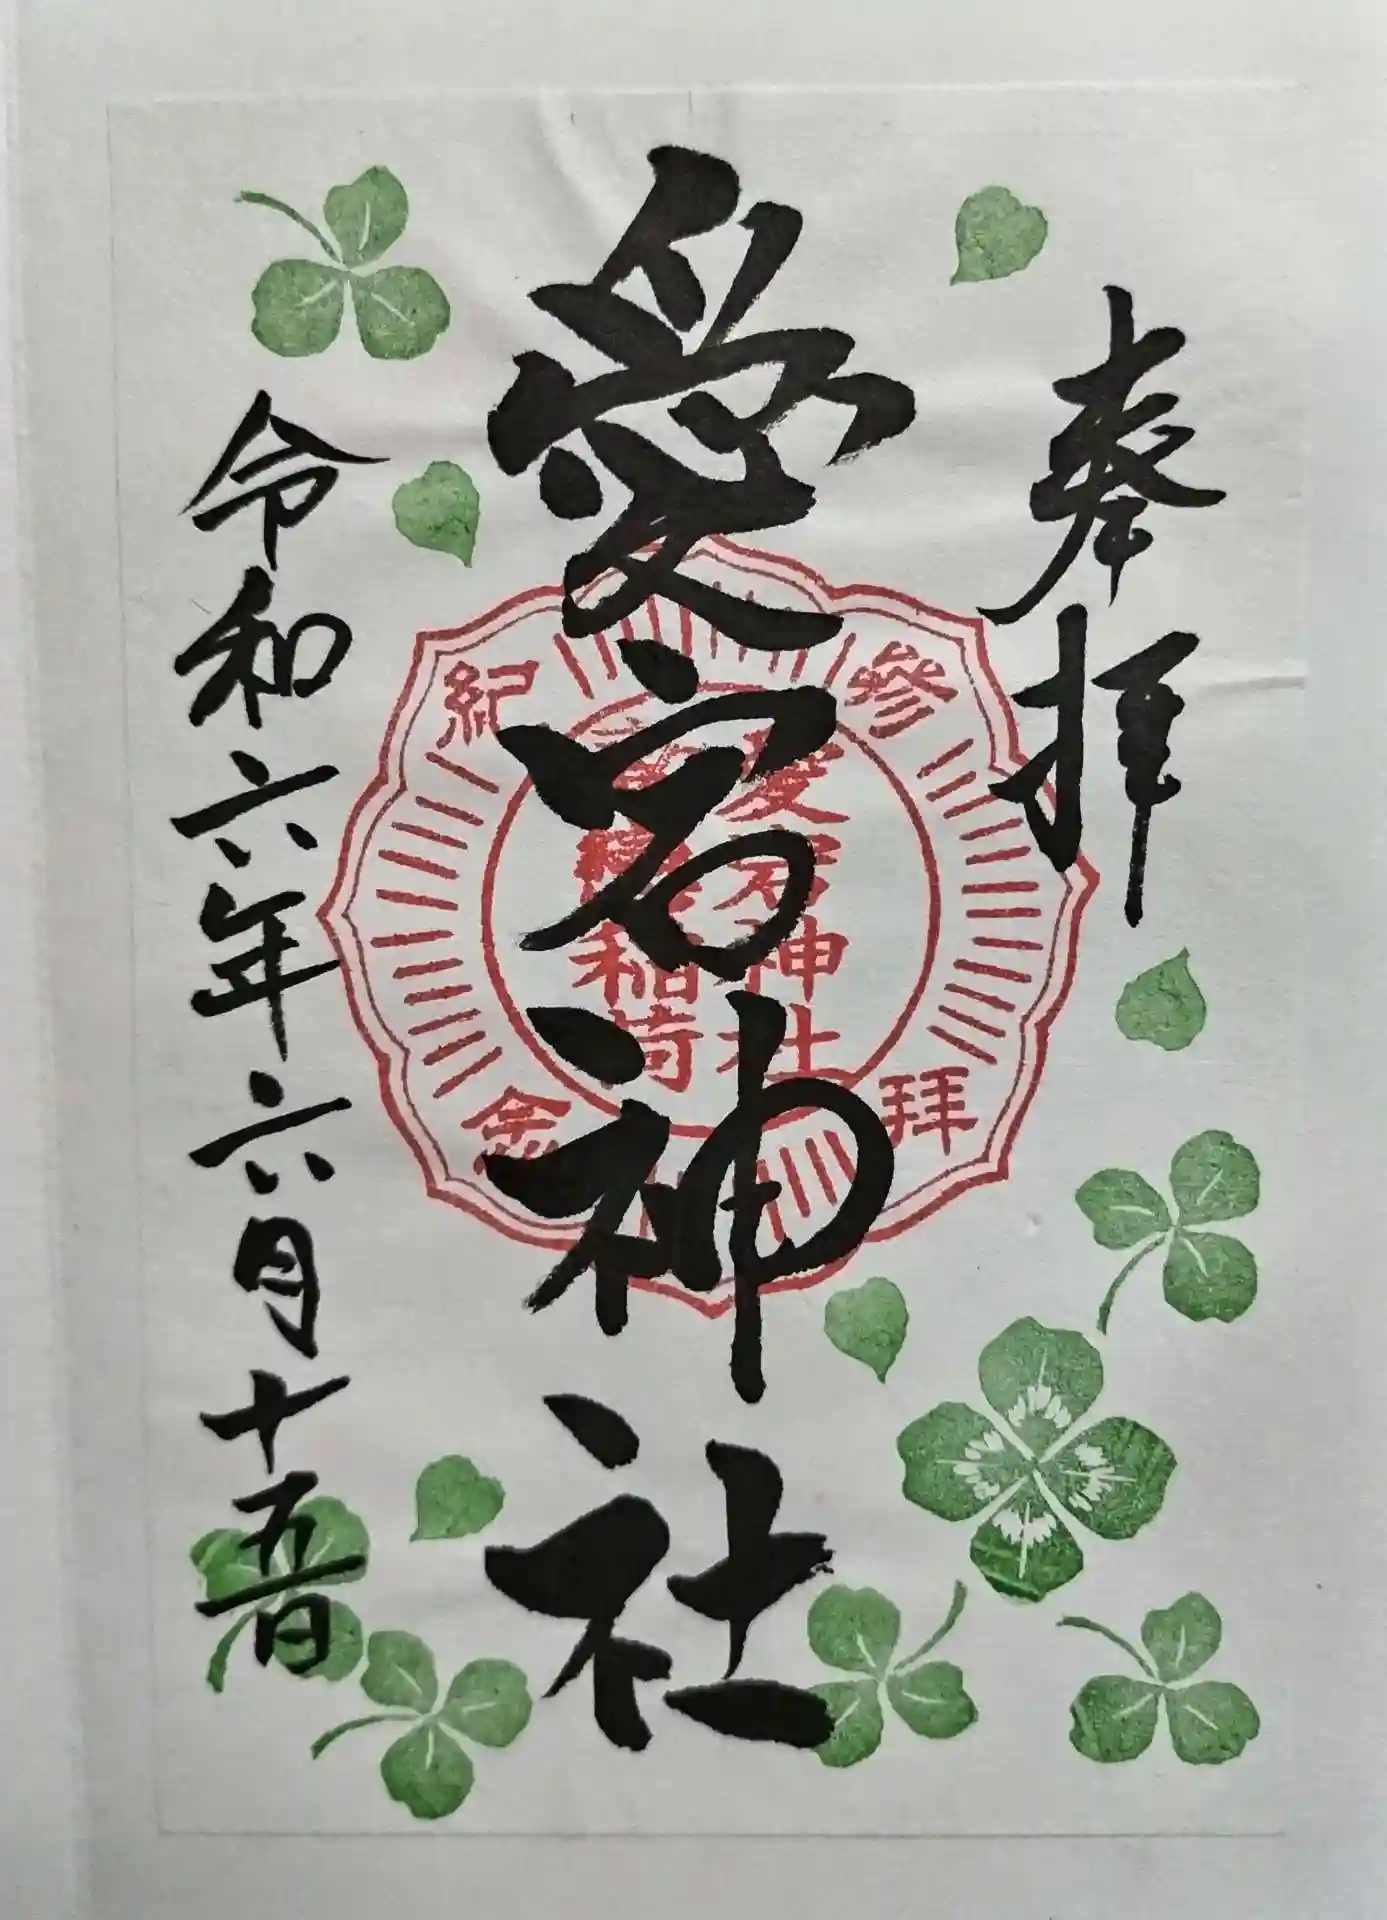 奉拝
愛宕神社
令和六年六月十五日
参拝紀念
愛宕神社
稲荷